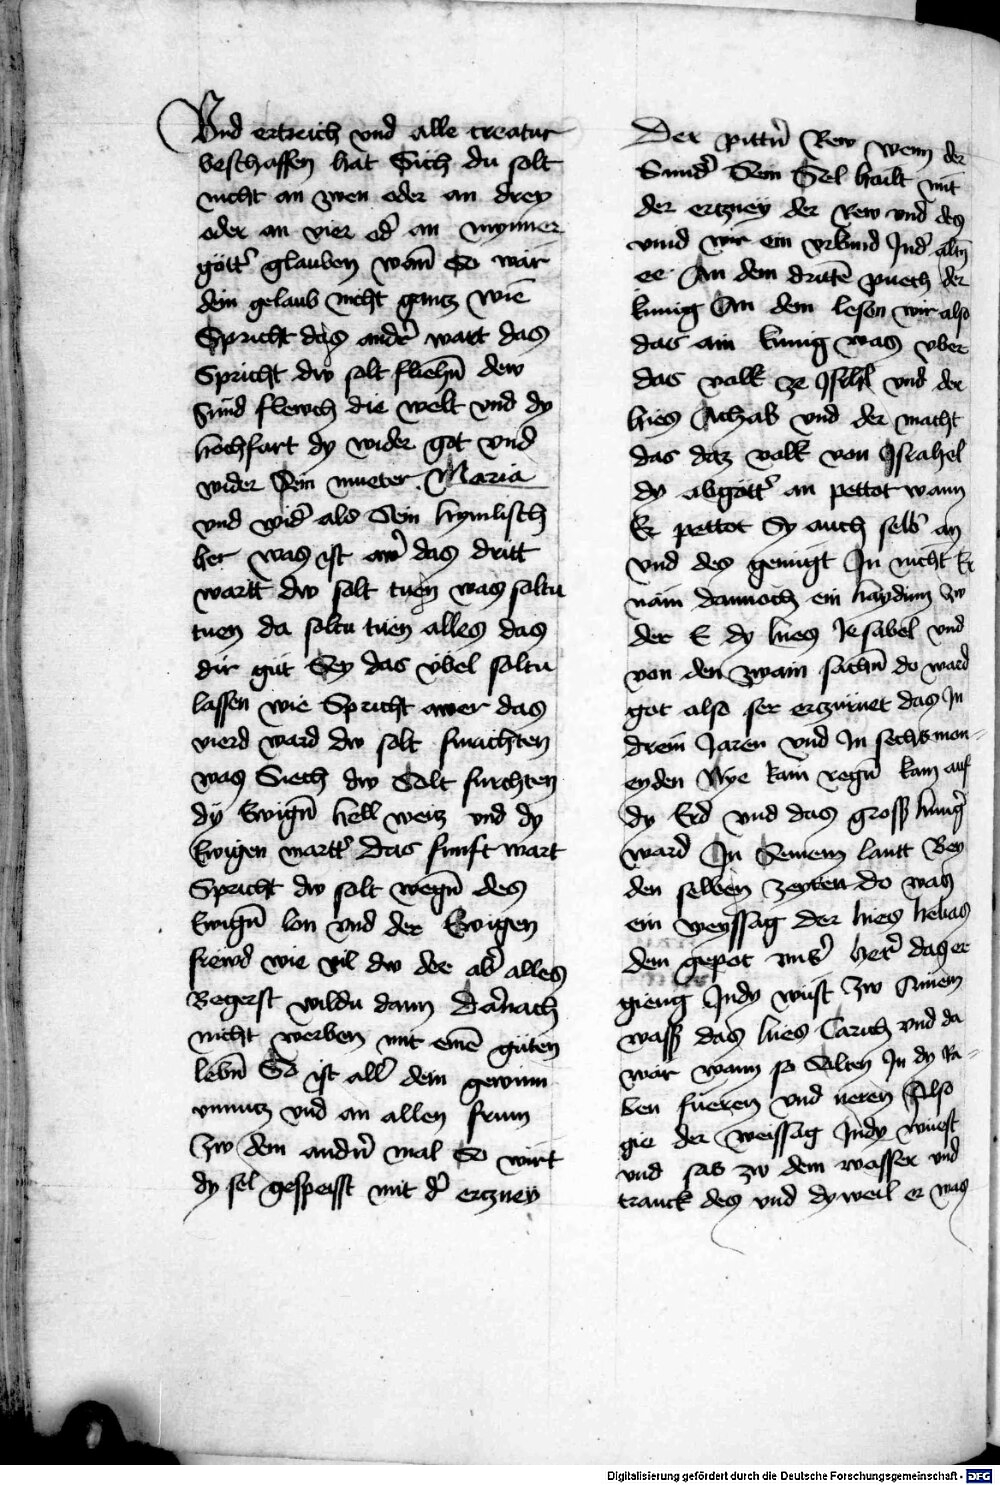 Vnd ertreich vnd alle creatur
beschaffen hat Sich du solt
nicht an zwen oder an drey
oder an vier od̕ an mynner
gött̕ glauben wan̄ So wär
dein gelaub nicht gantz wie
Spricht das and̕r wart das
Spricht dw solt fliehn̄ dew
sünd flewch die welt vnd dy
hochfart dy wider got vnd
wider Sein mueter Maria
vnd wid̕ als Sein hymlisch
her was ist aw̕ das dritt
wartt dw solt tuen was soltu
tuen da soltu tuen alles das
dir güt Sey das vbel soltu
lassen wie Spricht awer das
vierd ward dw solt furichten
was Siech dw Solt furchten
dy Ewign̄ hell weitz vnd dy
Ewigen martt̕ Das funft wart
Spricht dw solt wegn̄ des
Ewign̄ lon vnd der Ewigen
frewd wie vil dw der ab̕ alles
Begerst wildu dann Dar̄nach
nicht werben mit einē güten
lebn̄ So ist all̕ dein gewinn
vnnutz vnd an allen frum
Zw dem andn̄ mal So wirt
dy sel gespeisst mit d̕ ertzney
Der pittn̄ Rew wenn der
Sünd̕ Sein Sel hailt mit
der ertzney der Rew vnd des
vind wir ein vrkund Ind̕ altn̄
ee An dem drittē puech der
kunig An dem lesen wir also
das ain kunig was vber
das volk ze Isrl̄ vnd der
hies Achab vnd der macht
das daz volk von Israhel
dy abgött̕ an pettot wann
Er pettot Sy auch selb̕ an
vnd des genügt In nicht Er
nam dannoch ein haydinn Zw
der E dy hies Jesabel vnd
von den zwain sachn̄ do ward
got also ser erczürnet das In
drein Jaren vnd In sechs mon-
eyden Nye kain regn̄ kam auf
dy Erd vnd das gross hung̕
ward In Seinem lantt Bey
den selben zeyten do was
ein weyssag der hies helias
dem gepot vns̕ her̕ das er
gieng Indy wüst Zw ainem
wass das hies Carich vnd da
wär wann so Solten In dy Ra-
ben fueren vnd neren Also
gie der weissag Indy wuest
vnd sas zw dem wasser vnd
tranck des vnd dyweil er was
Digitalisierung gefördert durch die Deutsche Forschungsgemeinschaft - DFG